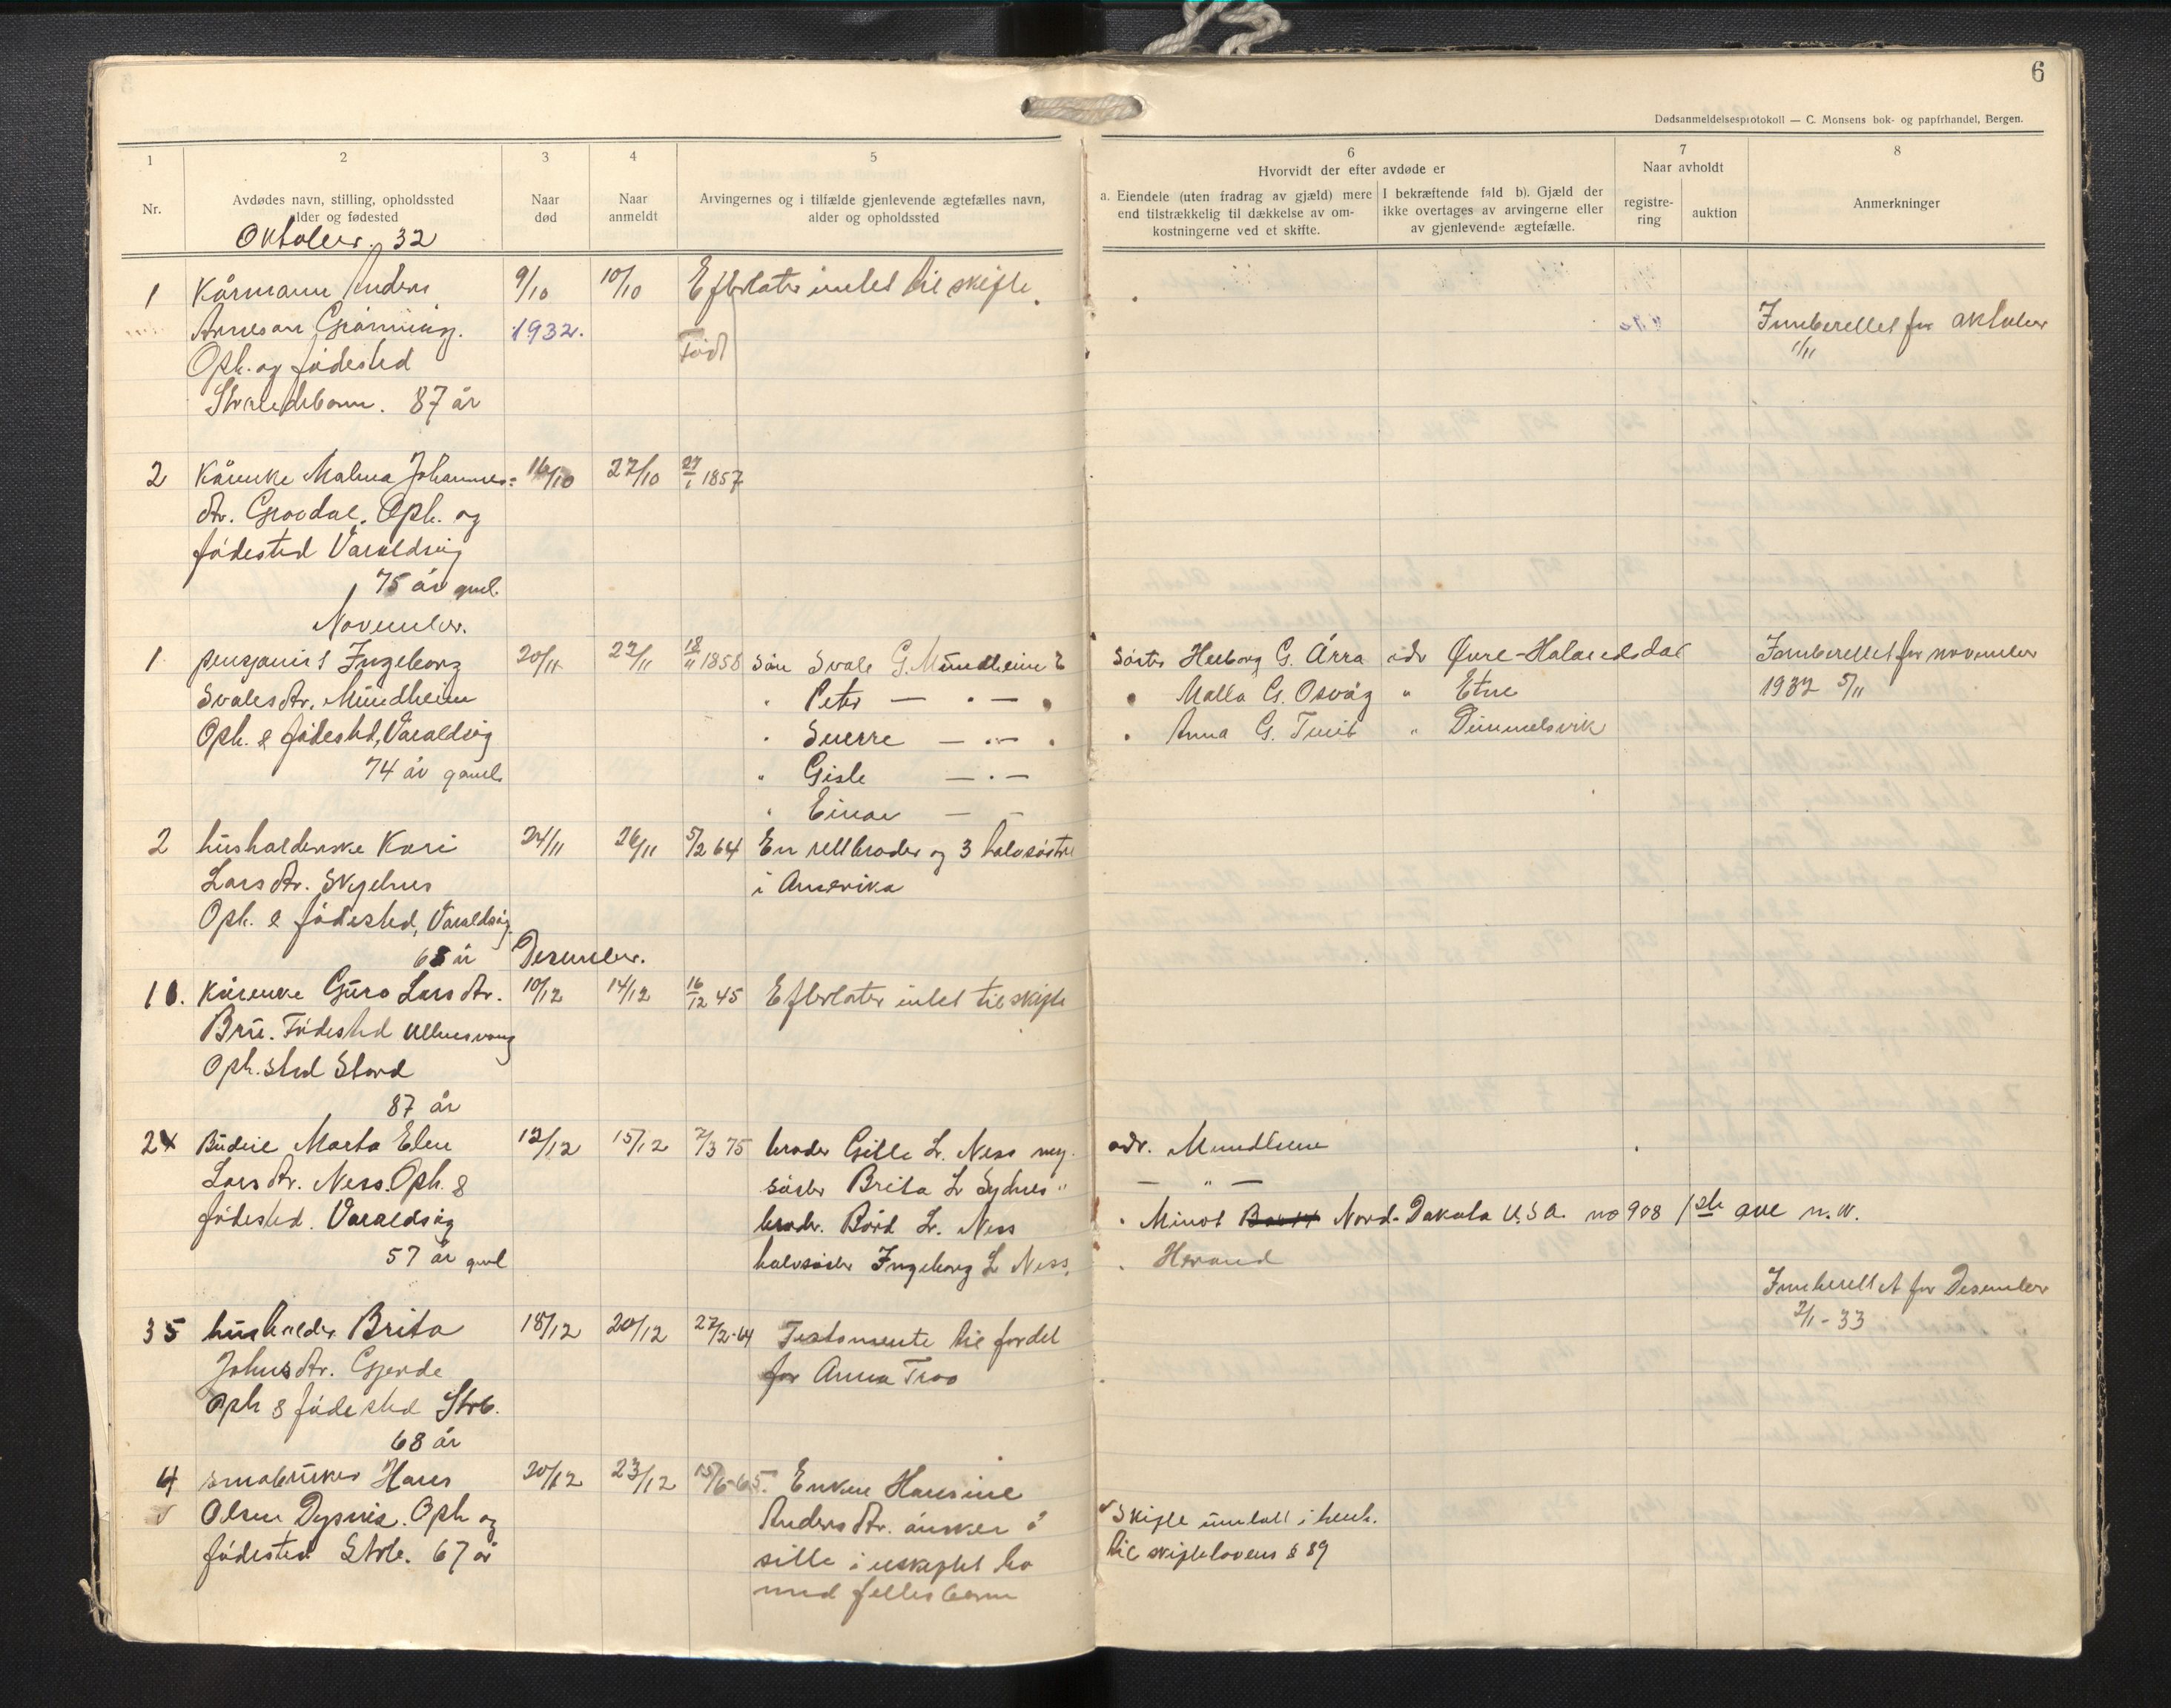 6
Dødsanmeldelsesprotokoll — C. Monsens bok- og papirhandel, Bergen.
1
Nr.
2
Avdødes navn, stilling, opholdssted
alder og fødested
Oktober. 32
3
Naar
død
4
Naar
anmeldt
5
Arvingernes og i tilfælde gjenlevende ægtefælles navn,
alder og opholdssted
6
Hvorvidt der efter avdøde er
a. Eiendele (uten fradrag av gjæld) mere
end tilstrækkelig til dækkelse av om-
kostningerne ved et skifte.
I bekræftende fald b). Gjæld der
ikke overtages av arvingerne eller
av gjenlevende ægtefælle.
7
Naar avholdt
registre-
ring
auktion
8
Anmerkninger
1 Kårmann Anders 9/10 10/10 Efterlater intet til skifte.
Arneson 1932.
Født
Oph. og fødested
Strandebarm. 87 år
Innberettet for oktober
1/11
2 Kårenke Malena Johannes= 16/10 27/10 27/1 1857
dtr. Oph. og
fødested Varaldsøy
75 år gml.
November.
1 pensjonist Ingeborg 20/11 22/11 18/11 1858 Søn Svale G. Mundheim
Svalesdtr. Mundheim " Peter — " —
Oph. & fødested, Varaldsøy " Sverre — " —
74 år gaml. " Gisle — " —
" Einar — —
Søster Herborg G. Arra adr Øvre-Halandsdal
" Malla G. Osvåg " Etne
" Anna G. " Dimmelsvik
Innberettet for november
1932 5/11
2 husholderske Kari 24/11 26/11 5/2 64 En rettbroder og 3 halvsøstre
Larsdtr. i Amerika
Oph. & fødested, Varaldsøy.
68 år
Desember.
1 Kårenke Guro Larsdtr. 10/12 14/12 16/12 45 Efterlater intet til skifte
Bru. Fødested Ullensvang
Oph.sted Stord
87 år
2 Budeie Marta Elen 12/12 15/12 2/3 75 broder Gitle L. Ness
Larsdtr. Ness. Oph. & søster Brita L Sydnes "
fødested. Varaldsøy broder. Bård L. Ness
57 år gml halvsøster Ingeborg L Ness.
adr. Mundheim
— " —
" Minot Nord-Dakota U.S.A. no 908 1ste ave n.W.
" Herand
Innberettet for Desember
2/1-33
3 husholder Brita 18/12 20/12 27/2-64 Testamente til fordel
Johnsdtr. Gjerde for Anna Troo
Oph & fødested Strb.
68 år
4 småbruker Hans 20/12 23/12 15/6-65. Enken Hansine
Olsen Oph og Andersdtr. ønsker å
fødested Strb. 67 år sitte i uskiftet bo
med felles barn
Skifte unnlatt i henh.
til skiftelovens § 89